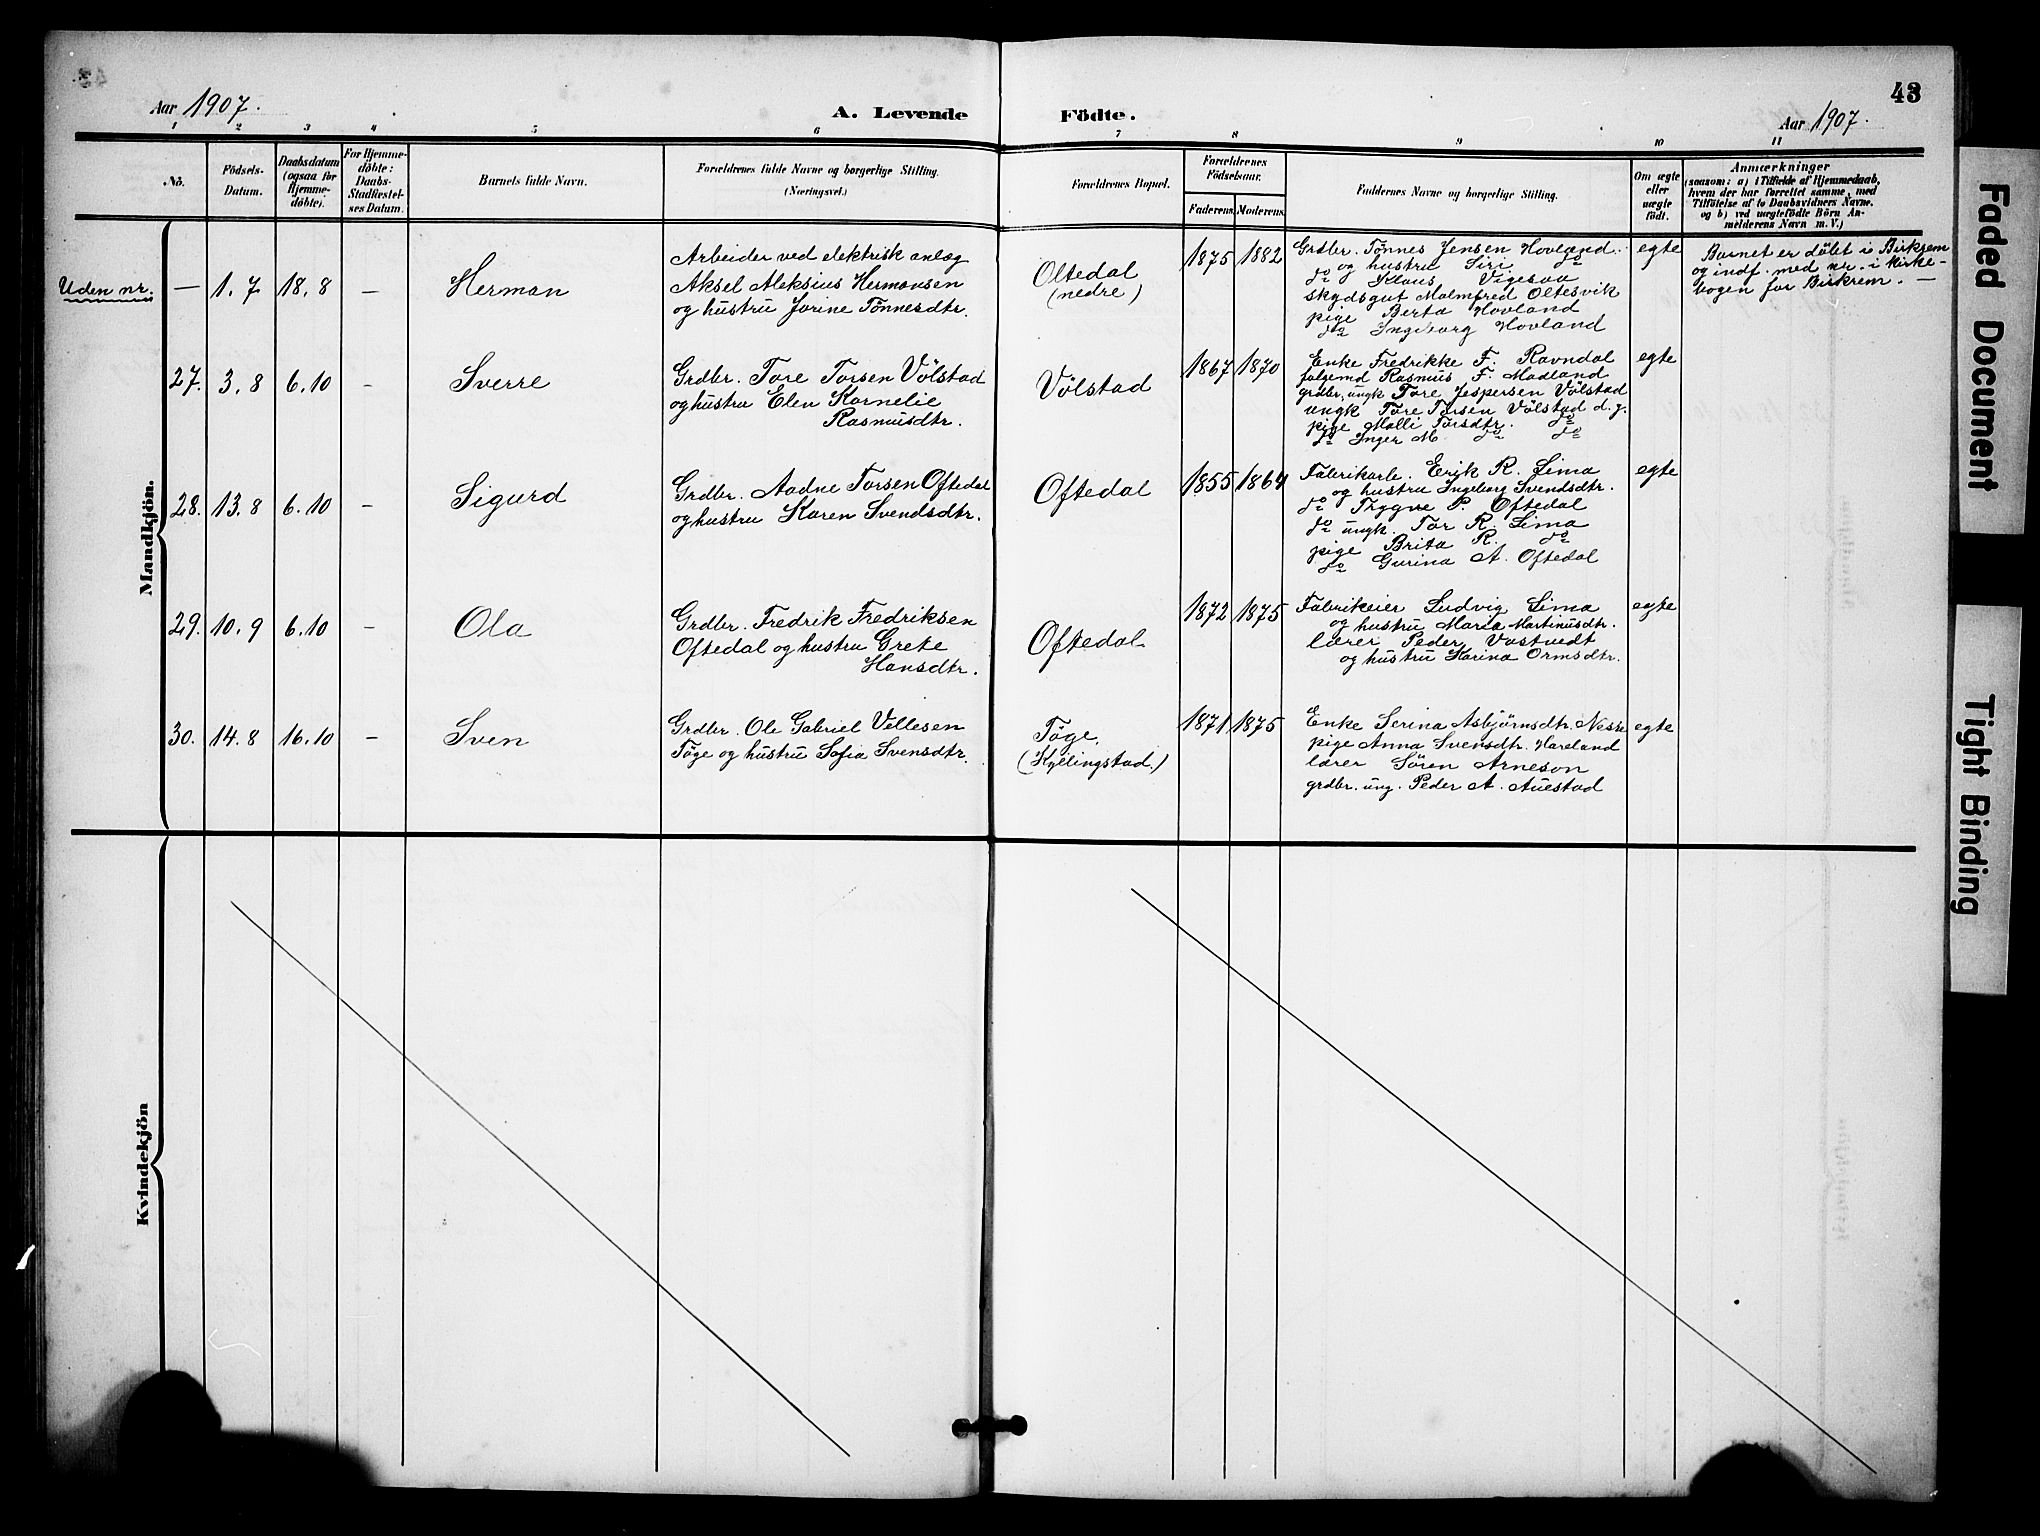 43
Aar 1907.
A. Levende Födte.
Aar 1907.
1 2 3 4 5 6 7 8 9 10 11
No.
Födsels-
Datum.
Daabsdatum
(ogsaa for
Hjemme-
döbte).
For Hjemme-
döbte:
Daabs-
Stadfæstel-
ses Datum.
Barnets fulde Navn.
Forældrenes fulde Navne og borgerlige Stilling.
(Næringsvei.)
Forældrenes Bopæl.
Forældrenes
Födselsaar.
Faderens. Moderens.
Faddernes Navne og borgerlige Stilling.
Om ægte
eller
uægte
födt.
Anmærkninger
(saasom: a) i Tilfælde af Hjemmedaab,
hvem der har forrettet samme, med
Tilföielse af to Daabsvidners Navne,
og b) ved uægtefödte Börn An-
melderens Navn m. V.)
Mandkjön.
Uden nr. — 1.7 18.8 —
Herman
Arbeider ved elektrisk anlæg
Aksel Aleksius Hermansen
og hustru Jorine Tönnesdtr.
Oltedal
(nedre)
1875 1882
Grdbr. Tönnes Jensen Hovland.
og hustru Siri do
do Klaus Vigesaa
Skydsgut Malmfred Oltesvik
pige Berta Hovland
do Ingeborg Hovland
egte
Barnet er döbt i Birkrem
og indf. med nr. i kirke-
bogen for Birkrem. —
27. 3.8 6.10 –
Sverre
Grdbr. Tore Torsen Völstad
og hustru Elen Kornelie
Rasmusdtr.
Völstad
1867 1870
Enke Fredrikke F. Ravndal
folgemd Rasmus F. Madland
grdbr. ungk Tore Jespersen Völstad
ungk Tore Torsen Völstad d.y.
pige Malli Torsdtr. do
do Inger M. do do
egte
28. 13.8 6.10 –
Sigurd
Grdbr. Aadne Torsen Oftedal
og hustru Karen Svendsdtr.
Oftedal
1855 1864
Fabrikarb. Erik R. Lima
og hustru Ingeborg Svendsdtr.
do Trygve P. Oftedal
do ungk. Tor R. Lima
pige Brita R. do
do Gurina A. Oftedal
egte
29. 10.9 6.10 –
Ola
Grdbr. Fredrik Fredriksen
Oftedal og hustru Grete
Hansdtr.
Oftedal
1872 1875
Fabrikeier Ludvig Lima
og hustru Maria Martinusdtr.
lærer Peder Vastvedt
og hustru Karina Ormsdtr.
egte
30. 14.8 16.10 –
Sven
Grdbr. Ole Gabriel Vellesen
Töge og hustru Sofia Svensdtr.
Töge.
(Kyllingstad.)
1871 1875
Enke Serina Asbjörnsdtr. Neske
pige Anna Svensdtr. Hareland
lærer Sören Arneson
grdbr. ung. Peder A. Auestad
egte
Kvindekjön
Faded Document
Tight Binding